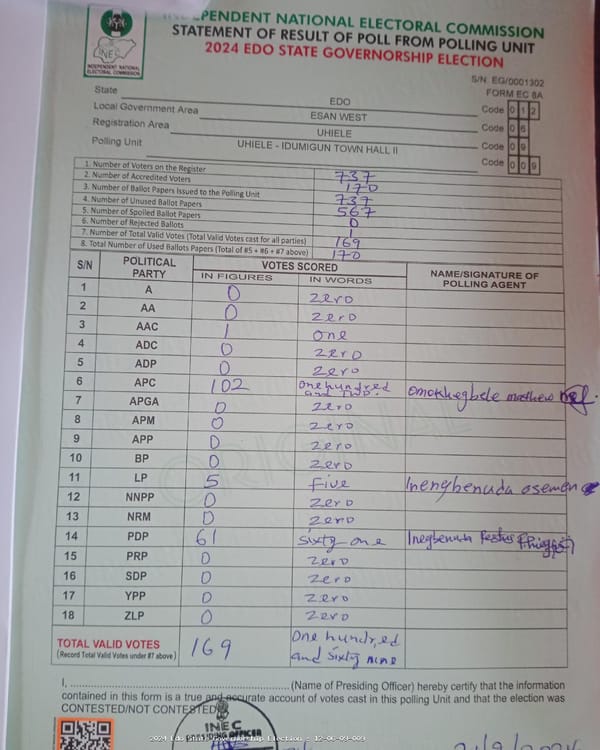 INEC
INDEPENDENT NATIONAL ELECTORAL COMMISSION
INDEPENDENT NATIONAL ELECTORAL COMMISSION
STATEMENT OF RESULT OF POLL FROM POLLING UNIT
2024 EDO STATE GOVERNORSHIP ELECTION
S/N EG/0001302
FORM EC 8A
State EDO Code 0 1 2
Local Government Area ESAN WEST Code 0 6
Registration Area UHIELE Code 0 9
Polling Unit UHIELE - IDUMIGUN TOWN HALL II Code 0 0 9
1. Number of Voters on the Register 737
2. Number of Accredited Voters 170
3. Number of Ballot Papers Issued to the Polling Unit 737
4. Number of Unused Ballot Papers 567
5. Number of Spoiled Ballot Papers 0
6. Number of Rejected Ballots 1
7. Number of Total Valid Votes (Total Valid Votes cast for all parties) 169
8. Total Number of Used Ballots Papers (Total of #5 + #6 + #7 above) 170
S/N POLITICAL PARTY VOTES SCORED NAME/SIGNATURE OF POLLING AGENT
IN FIGURES IN WORDS
1 A 0 zero
2 AA 0 zero
3 AAC 1 one
4 ADC 0 zero
5 ADP 0 zero
6 APC 102 one hundred and two. mathew
7 APGA 0 zero
8 APM 0 zero
9 APP 0 zero
10 BP 0 zero
11 LP 5 five osemen
12 NNPP 0 zero
13 NRM 0 zero
14 PDP 61 sixty one Festus
15 PRP 0 zero
16 SDP 0 zero
17 YPP 0 zero
18 ZLP 0 zero
TOTAL VALID VOTES 169 One hundred
(Record Total Valid Votes under #7 above) and sixty nine
ORIGINAL
I, (Name of Presiding Officer) hereby certify that the information
contained in this form is a true and accurate account of votes cast in this polling Unit and that the election was
CONTESTED/NOT CONTESTED
INEC
PRESIDING OFFICER
2024 Edo State Governorship Election : 12-06-09-009